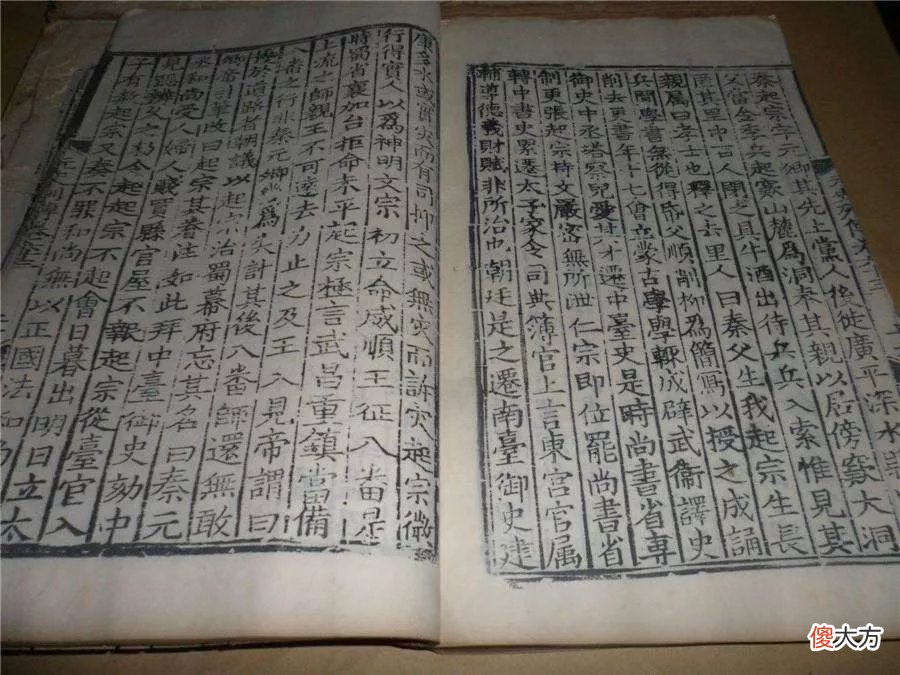 秦起宗字元卿其先上黨人後徙廣平深水縣
父當金季兵起家山麓爲洞奉其親以居傍竅大洞
匿其里中百人聞之具牛酒出待兵兵入索惟見其
親爲曰孝士也釋之去里人曰秦父生我起宗生長
兵間學書無從得紙父順削柳爲簡寫以授之成誦
削去更書年十七會立蒙古學學輒成辟武衛譯史
御史中丞塔察兒愛其才遷中臺史是時尚書省專
制更張起宗持文嚴密無所泄仁宗即位罷尚書省
轉中書史累遷太子家令司典簿官上言東宮官屬
輔導德義財賦非所治也朝廷是之遷南臺御史建
康寧水或實災而有司抑之或無災而訴災起宗徵
行得實人以爲神明文宗初立命威順王征八番是
時蜀省襄加台拒命未平起宗極言武昌重鎮當備
上流之師親王不可遠去力止之及王入見帝謂曰
八番之行非秦元卿幾爲失計其後八番師還無敢
擾於道路者朝議以起宗治蜀幕府忘其名曰秦元
卿帝引筆改曰起宗其眷注如此拜中臺御史劾中
丞和尚受人婦人賤買縣官屋不報起宗從臺官入
見跪辨久之敕令起起宗不起會日暮出明日立太
子有赦起宗又奏不罪和尚無以正國法和尚
傻大方